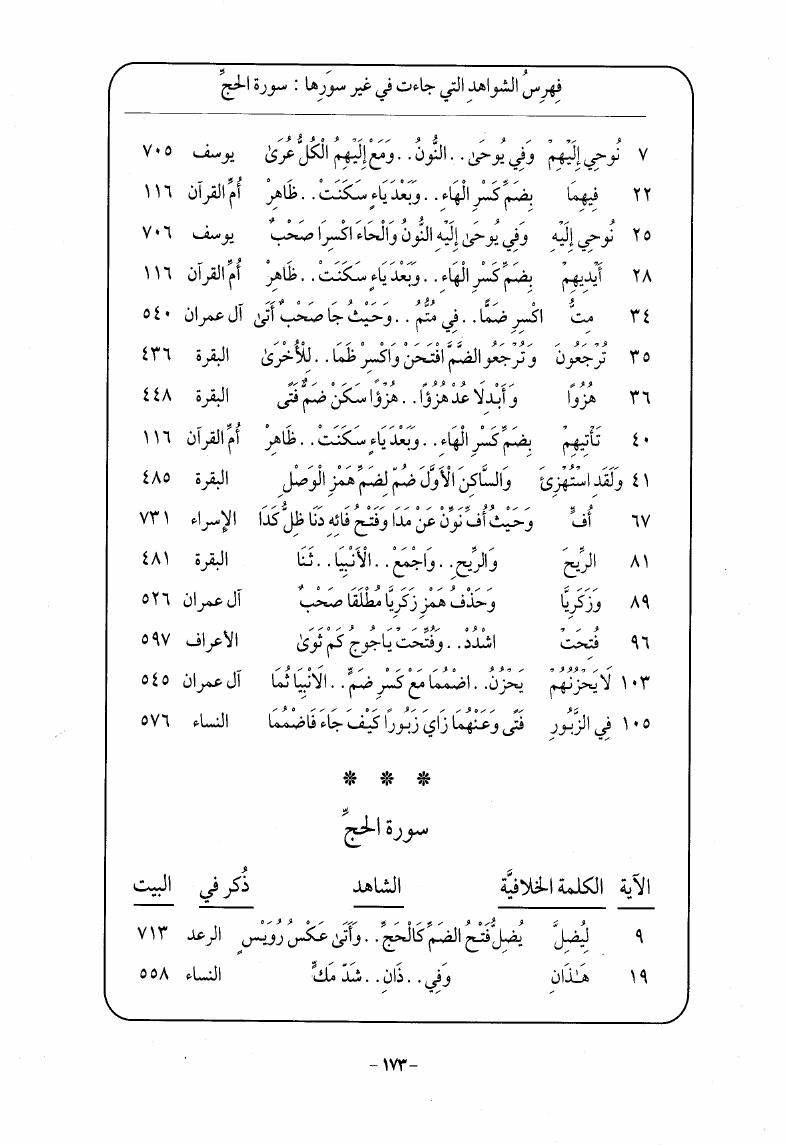 فِهرِسُ الشواهدِ التي جاءت في غير سوَرِها : سورة الحجِّ
٧ نُوحِي إِلَيْهِمْ وَفِي يُوحَىٰ..النُّونُ..وَمَعْ إِلَيْهِمُ الْكُلُّ عُرَىٰ يوسف ٧٠٥
٢٢ فِيهِمَا بِضَمِّ كَسْرِ الْهَاءِ..وَبَعْدَ يَاءٍ سَكَنَتْ..ظَاهِرْ أمِّ القرآن ١١٦
٢٥ نُوحِي إِلَيْهِ وَفِي يُوحَىٰ إِلَيْهِ النُّونُ وَالْحَاءَ اكْسِرَا صَحْبٌ يوسف ٧٠٦
٢٨ أَيْدِيهِمْ بِضَمِّ كَسْرِ الْهَاءِ..وَبَعْدَ يَاءٍ سَكَنَتْ..ظَاهِرْ أمِّ القرآن ١١٦
٣٤ مِتَّ اكْسِرِ ضَمًّا..فِي مُتُّمُ..وَحَيْثُ جَا صَحْبٌ أَتَىٰ آل عمران ٥٤٠
٣٥ تُرْجَعُونَ وَتُرْجَعُو الضَّمَّ افْتَحَنْ وَاكْسِرْ ظَمَا..لِلْأُخْرَىٰ البقرة ٤٣٦
٣٦ هُزُوًا وَأَبْدِلَا عُدْ هُزُؤًا..هُزْؤًا سَكَنْ ضُمَّ فَتًى البقرة ٤٤٨
٤٠ تَأْتِيهِمْ بِضَمِّ كَسْرِ الْهَاءِ..وَبَعْدَ يَاءٍ سَكَنَتْ..ظَاهِرْ أمِّ القرآن ١١٦
٤١ وَلَقَدِ اسْتُهْزِئَ وَالسَّاكِنَ الْأَوَّلَ ضُمَّ لِضَمِّ هَمْزِ الْوَصْلِ البقرة ٤٨٥
٦٧ أُفٍّ وَحَيْثُ أُفِّ نَوِّنْ عَنْ مَدَا وَفَتْحُ فَائِهِ دَنَا ظِلٌّ كَدَا الإسراء ٧٣١
٨١ الرِّيحَ وَالرِّيحِ..وَاجْمَعْ..الْأَنْبِيَا..ثَنَا البقرة ٤٨١
٨٩ وَزَكَرِيَّا وَحَذْفُ هَمْزِ زَكَرِيَّا مُطْلَقًا صَحْبٌ آل عمران ٥٢٦
٩٦ فُتِحَتْ اشْدُدْ..وَفُتِّحَتْ يَاجُوجُ كَمْ ثَوَىٰ الأعراف ٥٩٧
١٠٣ لَا يَحْزُنُهُمُ يَحْزُنُ..اضْمُمَا مَعْ كَسْرِ ضَمٍّ..الَانْبِيَا ثَمَا آل عمران ٥٤٥
١٠٥ فِي الزَّبُورِ فَتًى وَعَنْهُمَا زَايَ زَبُورًا كَيْفَ جَاءَ فَاضْمُمَا النساء ٥٧٦
* * *
سورة الحجِّ
الآية الكلمة الخلافيَّة الشاهد ذُكر في البيت
٩ لِيُضِلَّ يُضِلَّ فَتْحُ الضَّمِّ كَالْحَجِّ..وَأَتَىٰ عَكْسُ رُوَيْسٍ الرعد ٧١٣
١٩ هَٰذَانِ وَفِي..ذَانِ..شَدَّ مَكٍّ النساء ٥٥٨
-١٧٣-